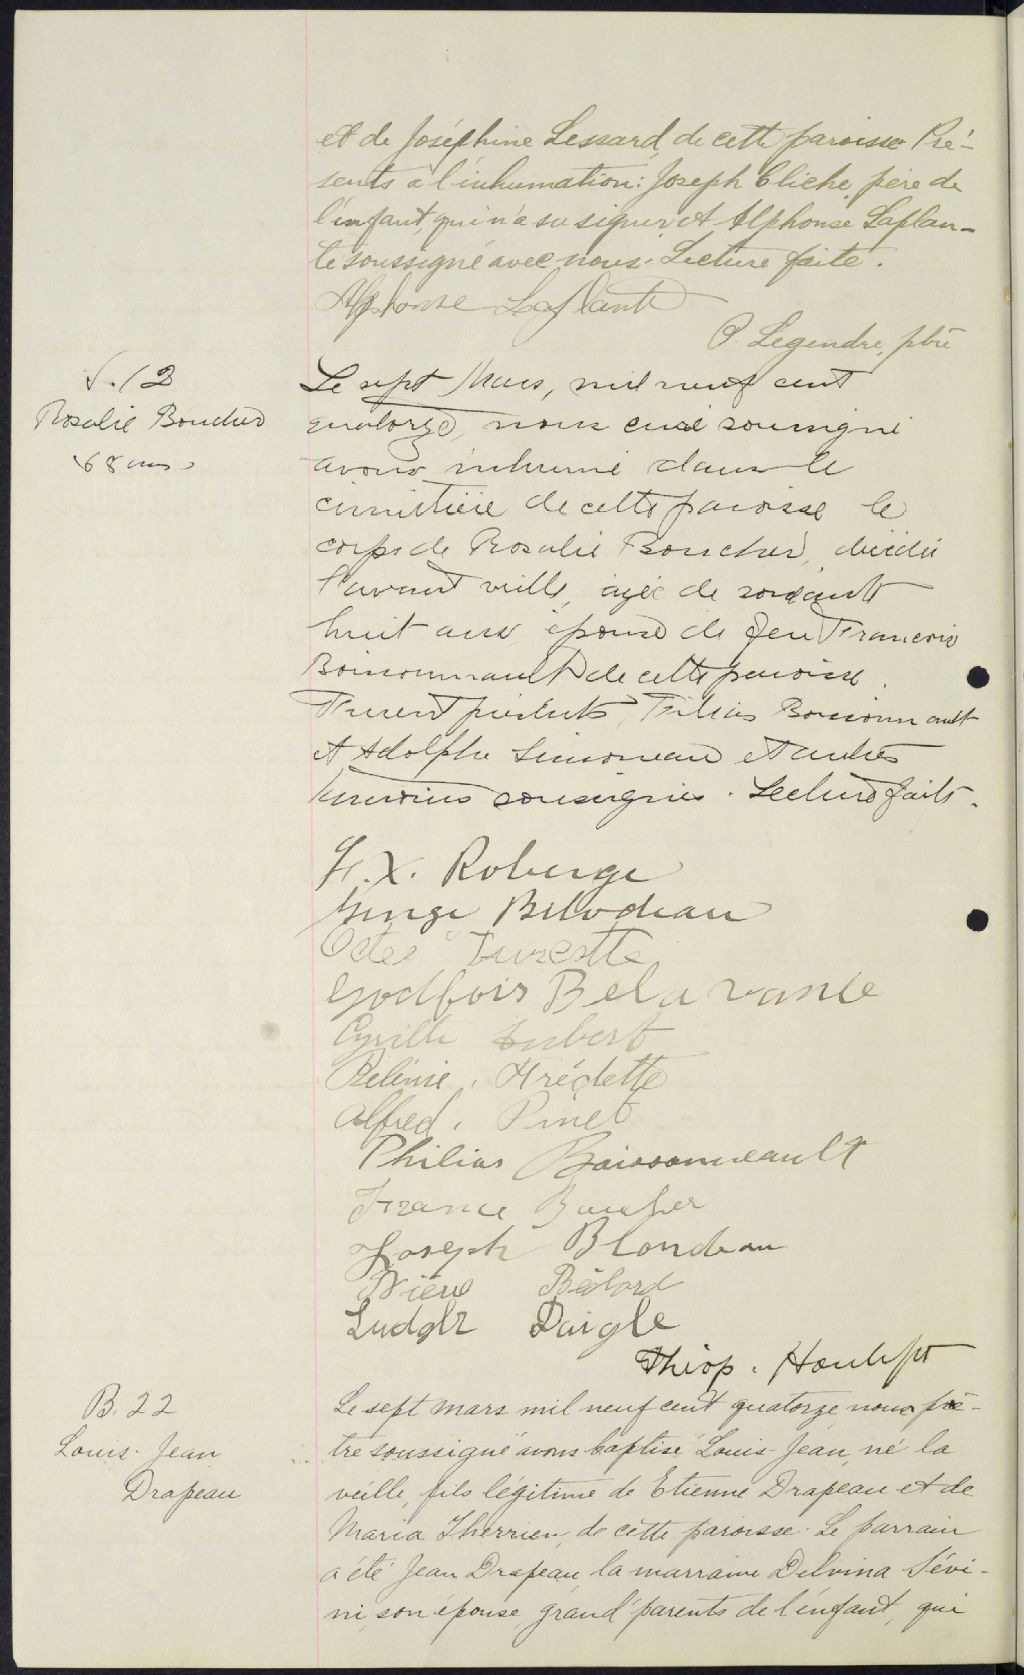 et de Joséphine Lessard, de cette paroisse. Pré-
sents à l'inhumation: Joseph Cliche, père de
l'enfant, qui n'a su signer, et Alphonse Laplan-
te soussigné avec nous. Lecture faite.
Alphonse Laplante
O. Legendre, ptre
S. 12
Rosalie Boucher
68 ans
Le sept Mars, mil neuf cent
quatorze, nous curé soussigné
avons inhumé dans le
cimetière de cette paroisse le
corps de Rosalie Boucher, décédée
l'avant veille, agée de soixante
huit ans, épouse de feu Francois
Boissonnault de cette paroisse.
Furent présents, Boissonnault
et Adolphe Simoneau et autres
témoins soussignés. Lecture faite.
F. X. Roberge
Bilodeau
Turcotte
Godfois Belavance
Cyrille Hubert
Fréchette
Alfred. Pinet
Philias Boissonneault
France
Joseph Blondeau
Bédard
Daigle
Théop. Houle ptr
B. 22
Louis-Jean
Drapeau
Le sept mars mil neuf cent quatorze nous prê-
tre soussigné avons baptisé Louis-Jean, né la
veille, fils légitime de Etienne Drapeau et de
Maria Therrien, de cette paroisse. Le parrain
a été Jean Drapeau, la marraine Delvina Sévi-
ni, son épouse, grand'parents de l'enfant, qui